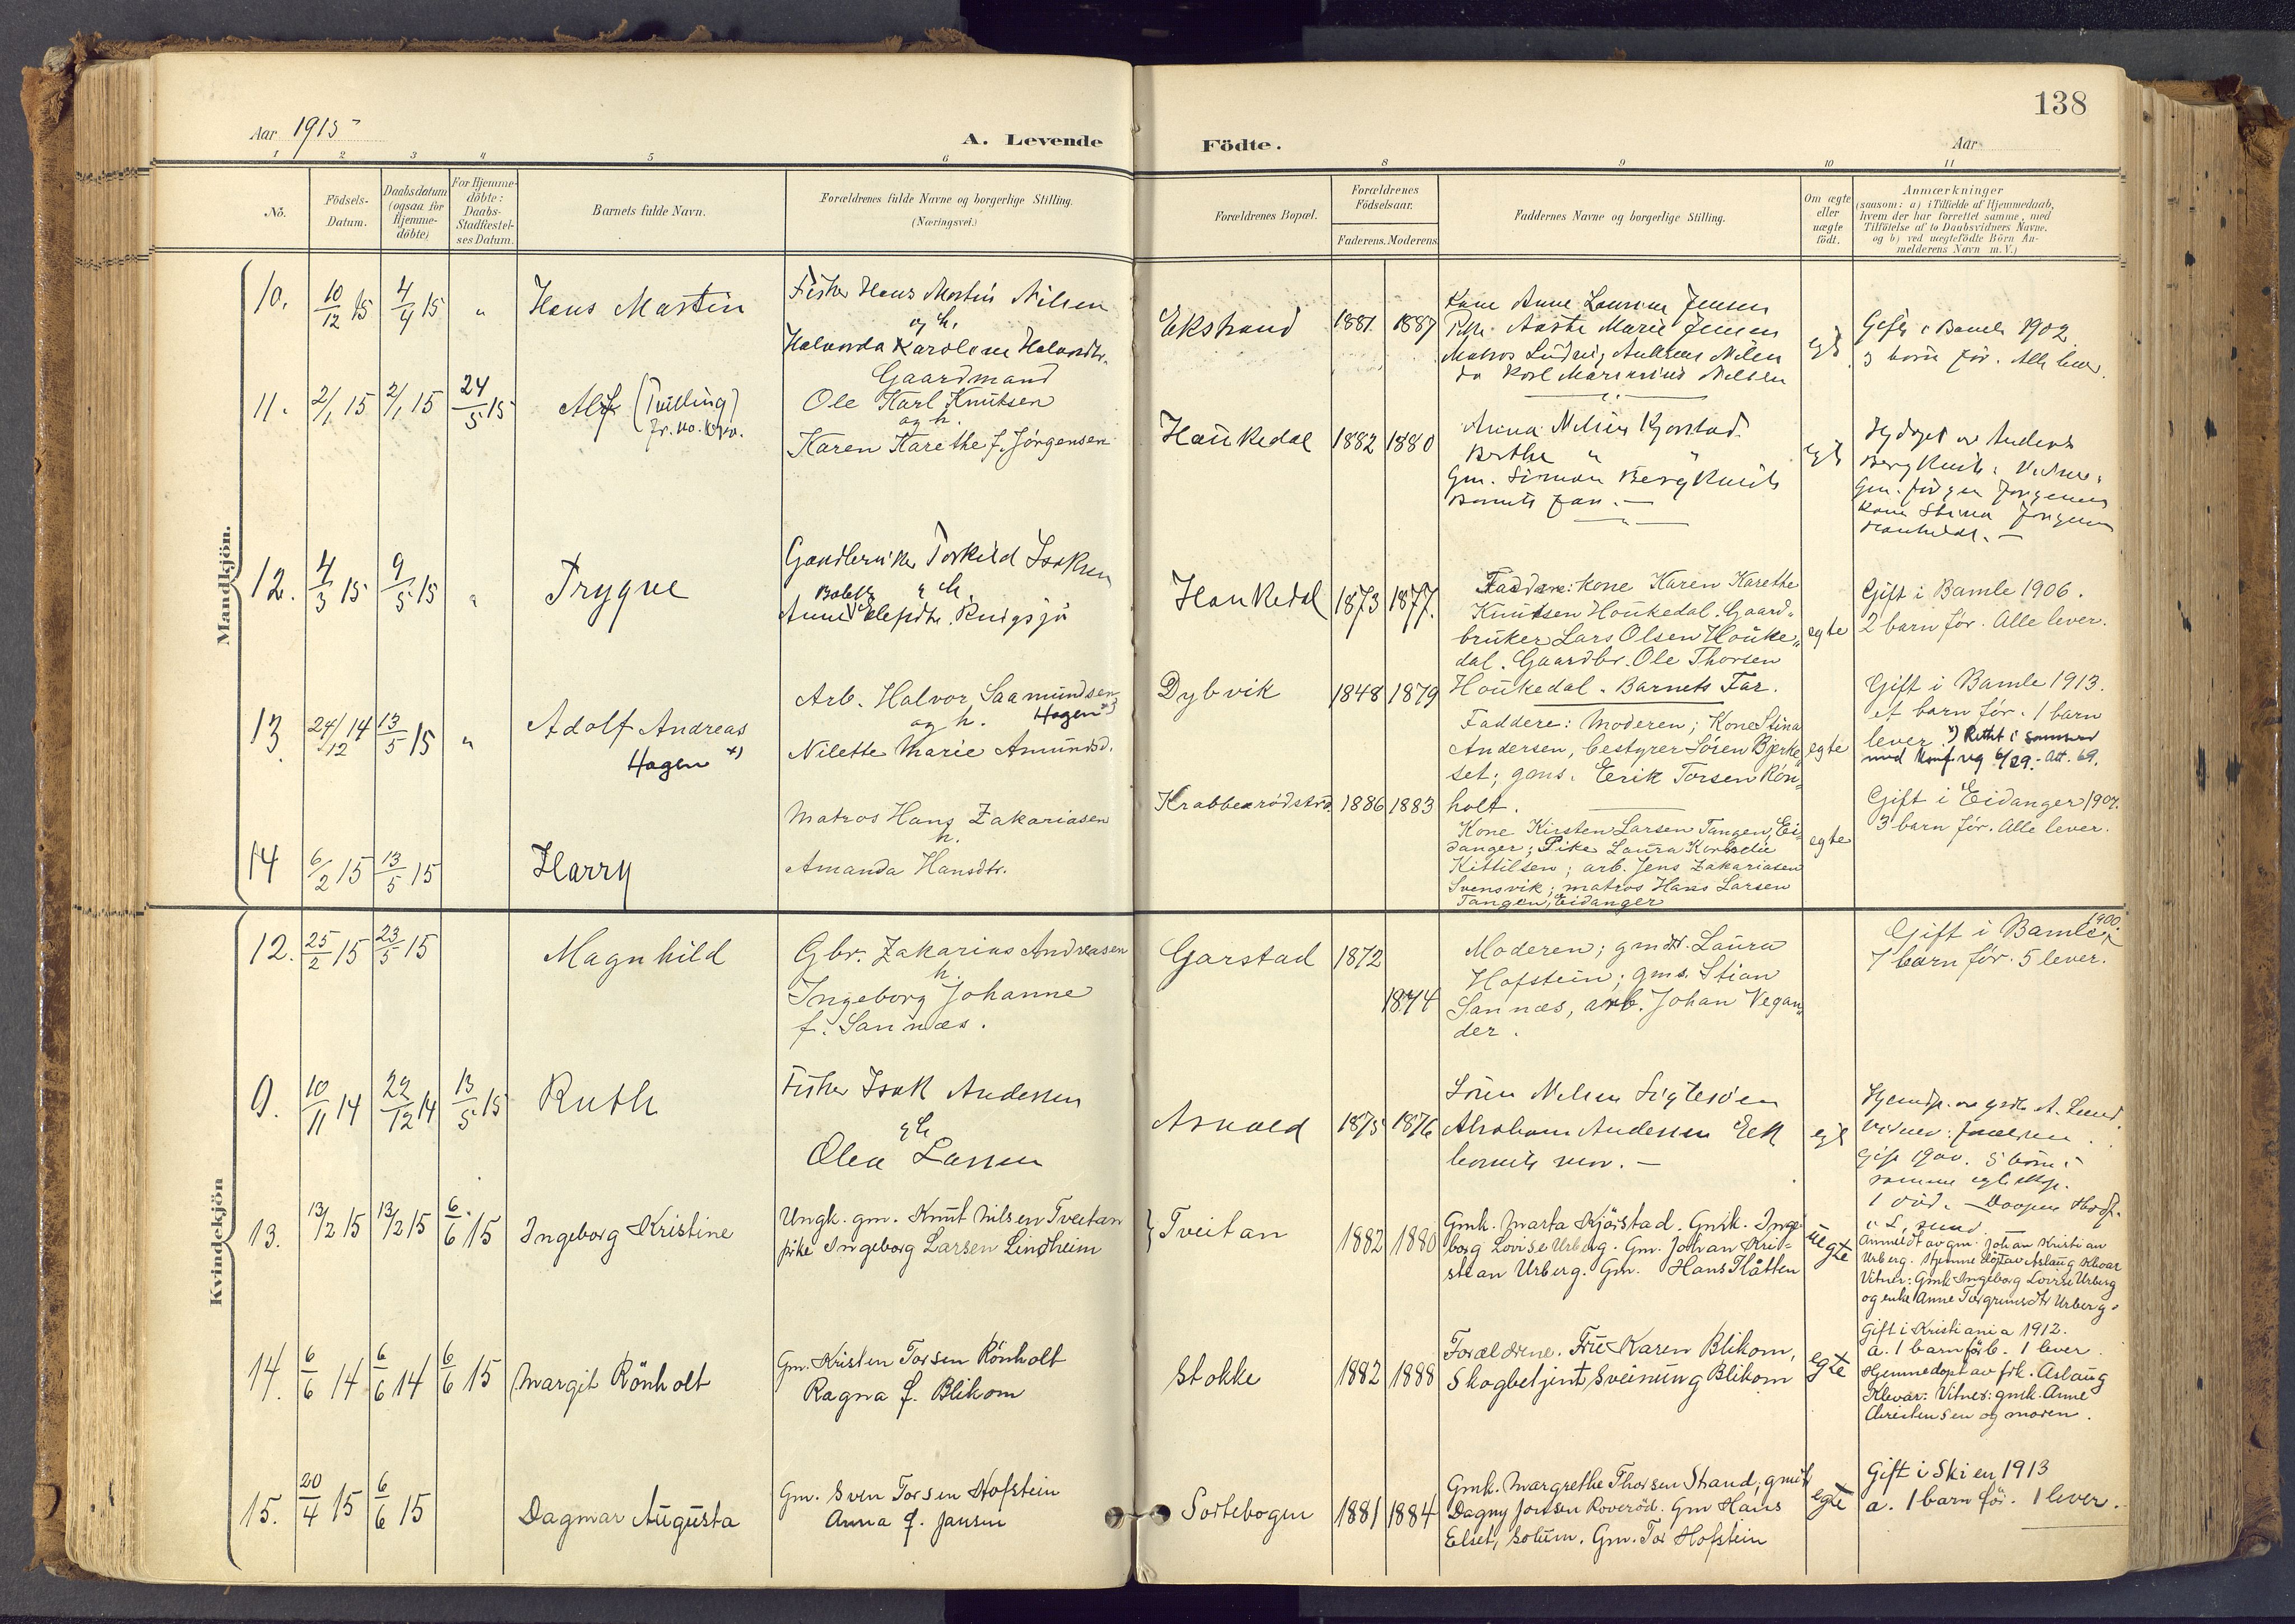 138
Aar 1915
A. Levende
Födte.
Aar
1 2 3 4 5 6 8 9 10 11
No.
Födsels-
Datum.
Daabsdatum
(ogsaa for
Hjemme-
döbte)
For Hjemme-
döbte:
Daabs-
Stadfæstel-
ses Datum.
Barnets fulde Navn.
Forældrenes fulde Navne og borgerlige Stilling.
(Næringsvei.)
Forældrenes Bopæl.
Forældrenes
Födselsaar.
Faderens. Moderens.
Faddernes Navne og borgerlige Stilling.
Om ægte
eller
uægte
födt.
Anmærkninger
(saasom: a) i Tilfælde af Hjemmedaab,
hvem der har forrettet samme, med
Tilföielse af to Daabsvidners Navne.
og b) ved uægtefödte Börn An-
melderens Navn m. V.)
Mandkjön.
10. 10/12 15 4/4 15 " Hans Martin
Fisker Hans Martin Nilsen
og h.
Halvorda Karoline Halvordtr.
Ekstrand 1881 1887
Kone Anne Laurine Jensen
Pike Aaste Marie Jensen
Matros Ludvig Andreas Nilsen
do Karl Marinius Nilsen
egt
Gift i Bamle 1902
3 börn för. Alle lever.
11. 2/1 15 2/1 15 24/5 15 Alf (Tvilling)
Gaardmand
Ole Karl Knutsen
og h.
Karen Karethe f. Jörgensen
Houkedal 1882 1880
Anna Nilsen Kjorstad
Berthe " "
Gm. Simon Berg Knuts
Barnets far. —
egt
Hjdöpt av Anders
Berg
Gm. Jörgen Jörgensen
Kone Stina Jörgensen
12. 4/3 15 9/5 15 " Trygve
Gaardbruker Torkild Isaksen
og h.
Houkedal 1873 1877.
Faddere: kone Karen Karethe
Knutsen Houkedal. Gaard-
bruker Lars Olsen Houke-
dal. Gaardbr. Ole Thorsen
Houkedal. Barnets Far.
egte
Gift i Bamle 1906.
2 barn för. Alle lever.
13. 24/12 14 13/5 15 " Adolf Andreas
Hagen x)
Arb. Halvor Saamundsen
og h. Hagen x)
Nilette Marie Amundsd.
Dybvik 1848 1879
Faddere: Moderen; Kone Stina
Andersen, bestyrer Sören Bjerke-
set; gms. Eerik Torsen Rön-
holt.
egte
Gift i Bamle 1913.
et barn för. 1 barn
lever. x) Rettet i samsvar
med konf.reg 6/29.- Att. 69.
14 6/2 15 13/5 15 Harry
Matros Hans Zakariasen
h.
Amanda Hansdtr.
Krabberödstr. 1886 1883
Kone Kirsten Larsen Tangen, Ei-
danger; Pike Laura Kornelie
Kittilsen; arb. Jens Zakariasen
Svensvik; matros Hans Larsen
Tangen, Eidanger
egte
Gift i Eidanger 1907.
3 barn för. Alle lever.
Kvindekjön
12. 25/2 15 23/5 15 Magnhild
Gbr. Zakarias Andreasen
h.
Ingeborg Johanne
f. Sannæs.
Garstad 1872
1874
Moderen; gmdtr. Laura
Hofstein; gms. Stian
Sannæs, arb. Johan Vegan-
der.
Gift i Bamle 1900.
7 barn för. 5 lever.
9. 10/11 14 22/12 14 13/5 15 Ruth
Fisker Isak Andersen
og h
Olea Larsen
Asvald 1875 1876
Sören Nilsen
Abraham Andersen Eek
barnets mor. —
egt
Gift 1900. 5 börn i
samme egteskap.
1 död.
13. 13/2 15 13/2 15 6/6 15 Ingeborg Kristine
Ungk. gm. Knut Nilsen Tveitan
pike Ingeborg Larsen Lindheim
Tveitan 1882 1880
Gmk. Marta Kjörstad. Gmk. Inge-
borg Lovise Urberg. Gm. Johan Kri-
stian Urberg. Gm. Hans Flåtten
uegte
Anmeldt av gm. Johan Kristian
Urberg. Hjemme döpt av Aslaug Klevar
Vitner: Gmk Ingeborg Lovise Urberg
og enke Anne Torgrimsdtr Urberg.
14. 6/6 14 6/6 14 6/6 15 Margit Rönholt
Gm. Kristen Torsen Rönholt
Ragna f. Blikom
Stokke 1882 1888
Forældrene. Frue Karen Blikom,
Skogbetjent Sveinung Blikom
egte
Gift i Kristiania 1912.
a. 1 barn för b. 1 lever.
Hjemmedöpt av frk. Aslaug
Klevar: Vitner: gmk. Anne
Christensen og moren.
15. 20/4 15 6/6 15 Dagmar Augusta
Gm. Sven Torsen Hofstein
Anna f. Jansen
Sortebogen 1881 1884
Gmk. Margrethe Thorsen Strand; gmdtr
Dagny Jontsen Roveröd. Gm Hans
Elset, Solum. Gm. Tor Hofstein
egte
Gift i Skien 1913
a. 1 barn för. 1 lever.